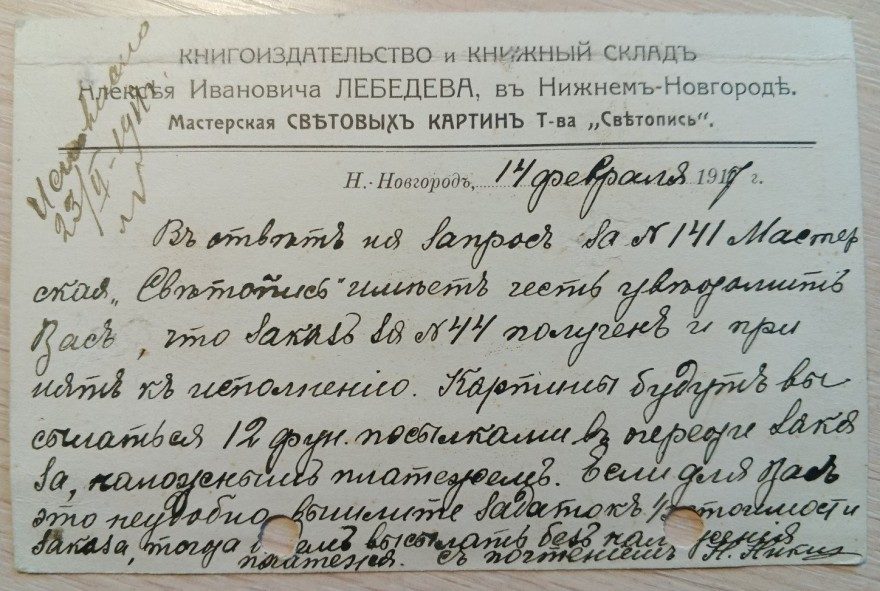 КНИГОИЗДАТЕЛЬСТВО и КНИЖНЫЙ СКЛАДЪ
Алексѣя Ивановича ЛЕБЕДЕВА, въ Нижнемъ-Новгородѣ.
Мастерская СВѢТОВЫХЪ КАРТИНЪ Т-ва „Свѣтопись“.
23/II-1917г.
Н.-Новгородъ, 14 февраля 1917 г.
Въ отвѣтъ на запросъ за N 141 Мастер
ская „Свѣтопись“ имѣетъ честь увѣдомить
Васъ, что заказъ за N 44 полученъ и при
нятъ къ исполненію. Картины будутъ вы
сылаться 12 фун. посылками въ череди зака
за, наложнымъ платежемъ. Если для Васъ
это неудобно вышлите задатокъ стоимости
заказа, тогда высылать безъ наложенія
платежа. Съ почтеніемъ